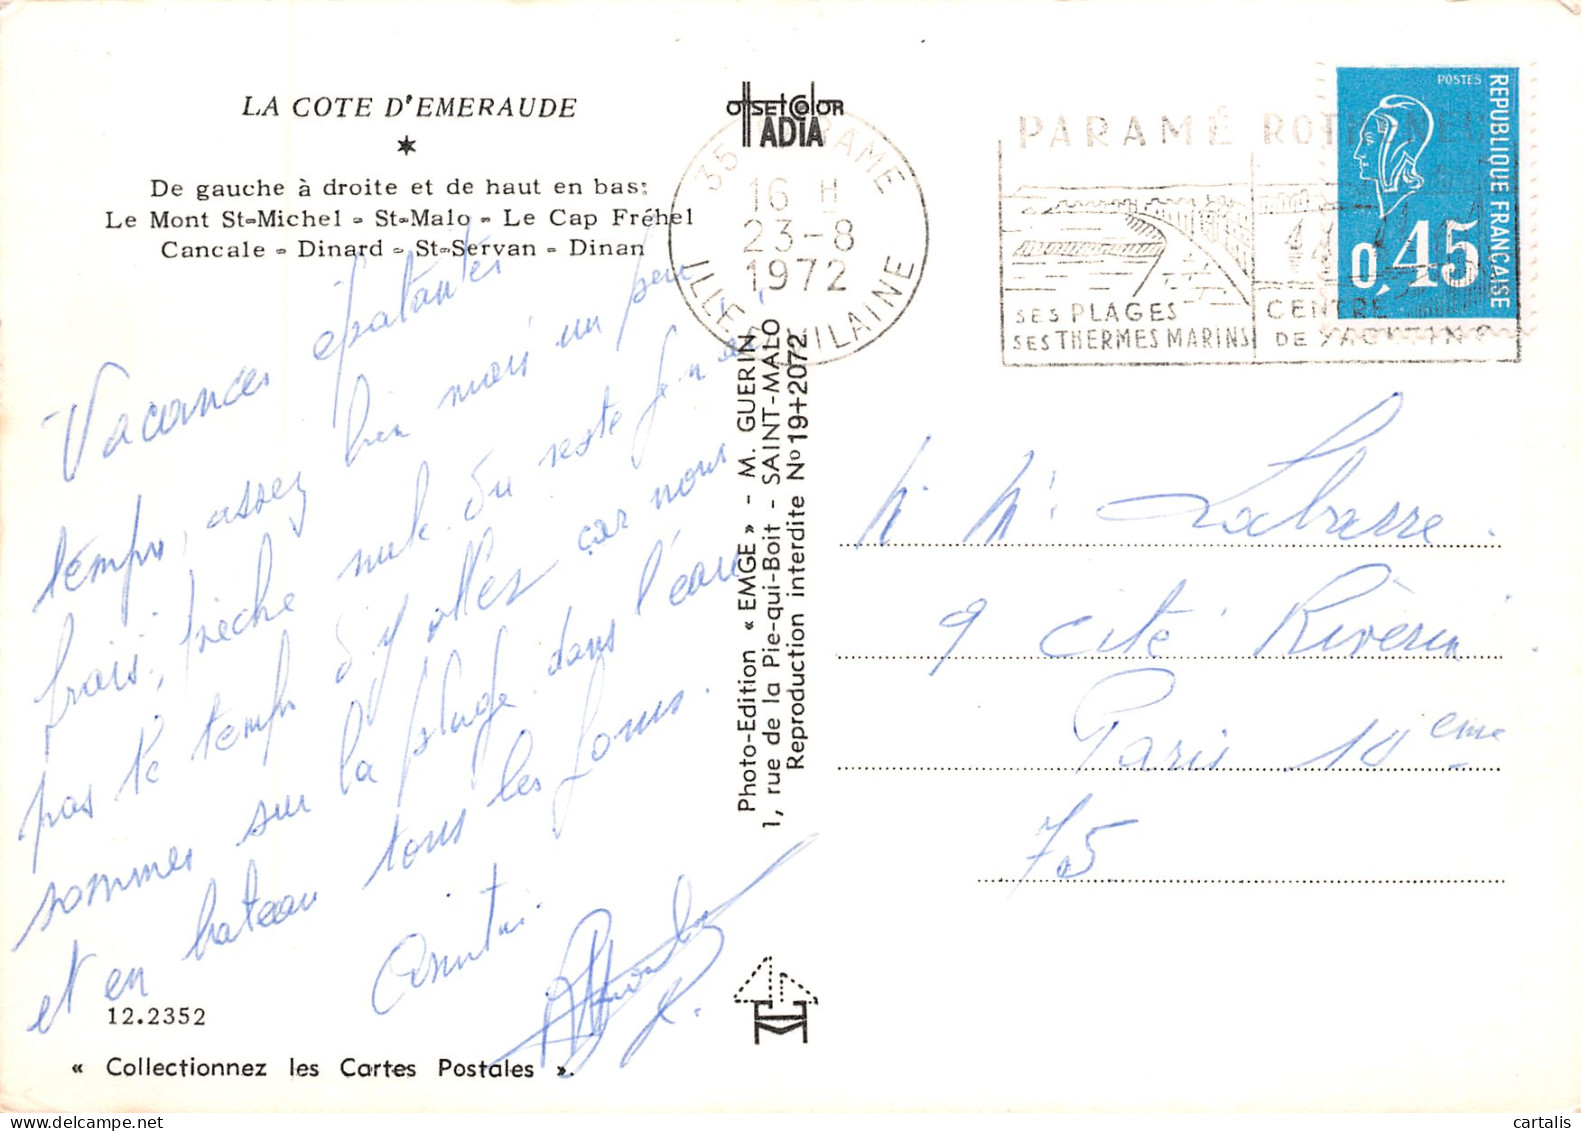 LA COTE D'EMERAUDE
De gauche à droite et de haut en bas:
Le Mont St-Michel - St-Malo - Le Cap Fréhel
Cancale - Dinard - St-Servan - Dinan
Vacances épatantes
temps, assez bien mais un peu
frais, pêche nulle du reste je n'ai
pas le temps d'y aller car nous
sommes sur la plage dans l'eau
et en bateau tous les jours.
12.2352
« Collectionnez les Cartes Postales ».
OffsetColor
ADIA
Photo-Edition « EMGE » - M. GUERIN
1, rue de la Pie-qui-Boit - SAINT-MALO
Reproduction interdite No 19+2072
35 PARAME
16 H
23-8
1972
ILLE & VILAINE
PARAMÉ
SES PLAGES
SES THERMES MARINS
CENTRE
DE YACHTING
POSTES
REPUBLIQUE FRANÇAISE
0,45
M. Me Labarre.
9 cité Riverin
Paris 10eme
75
cartalis